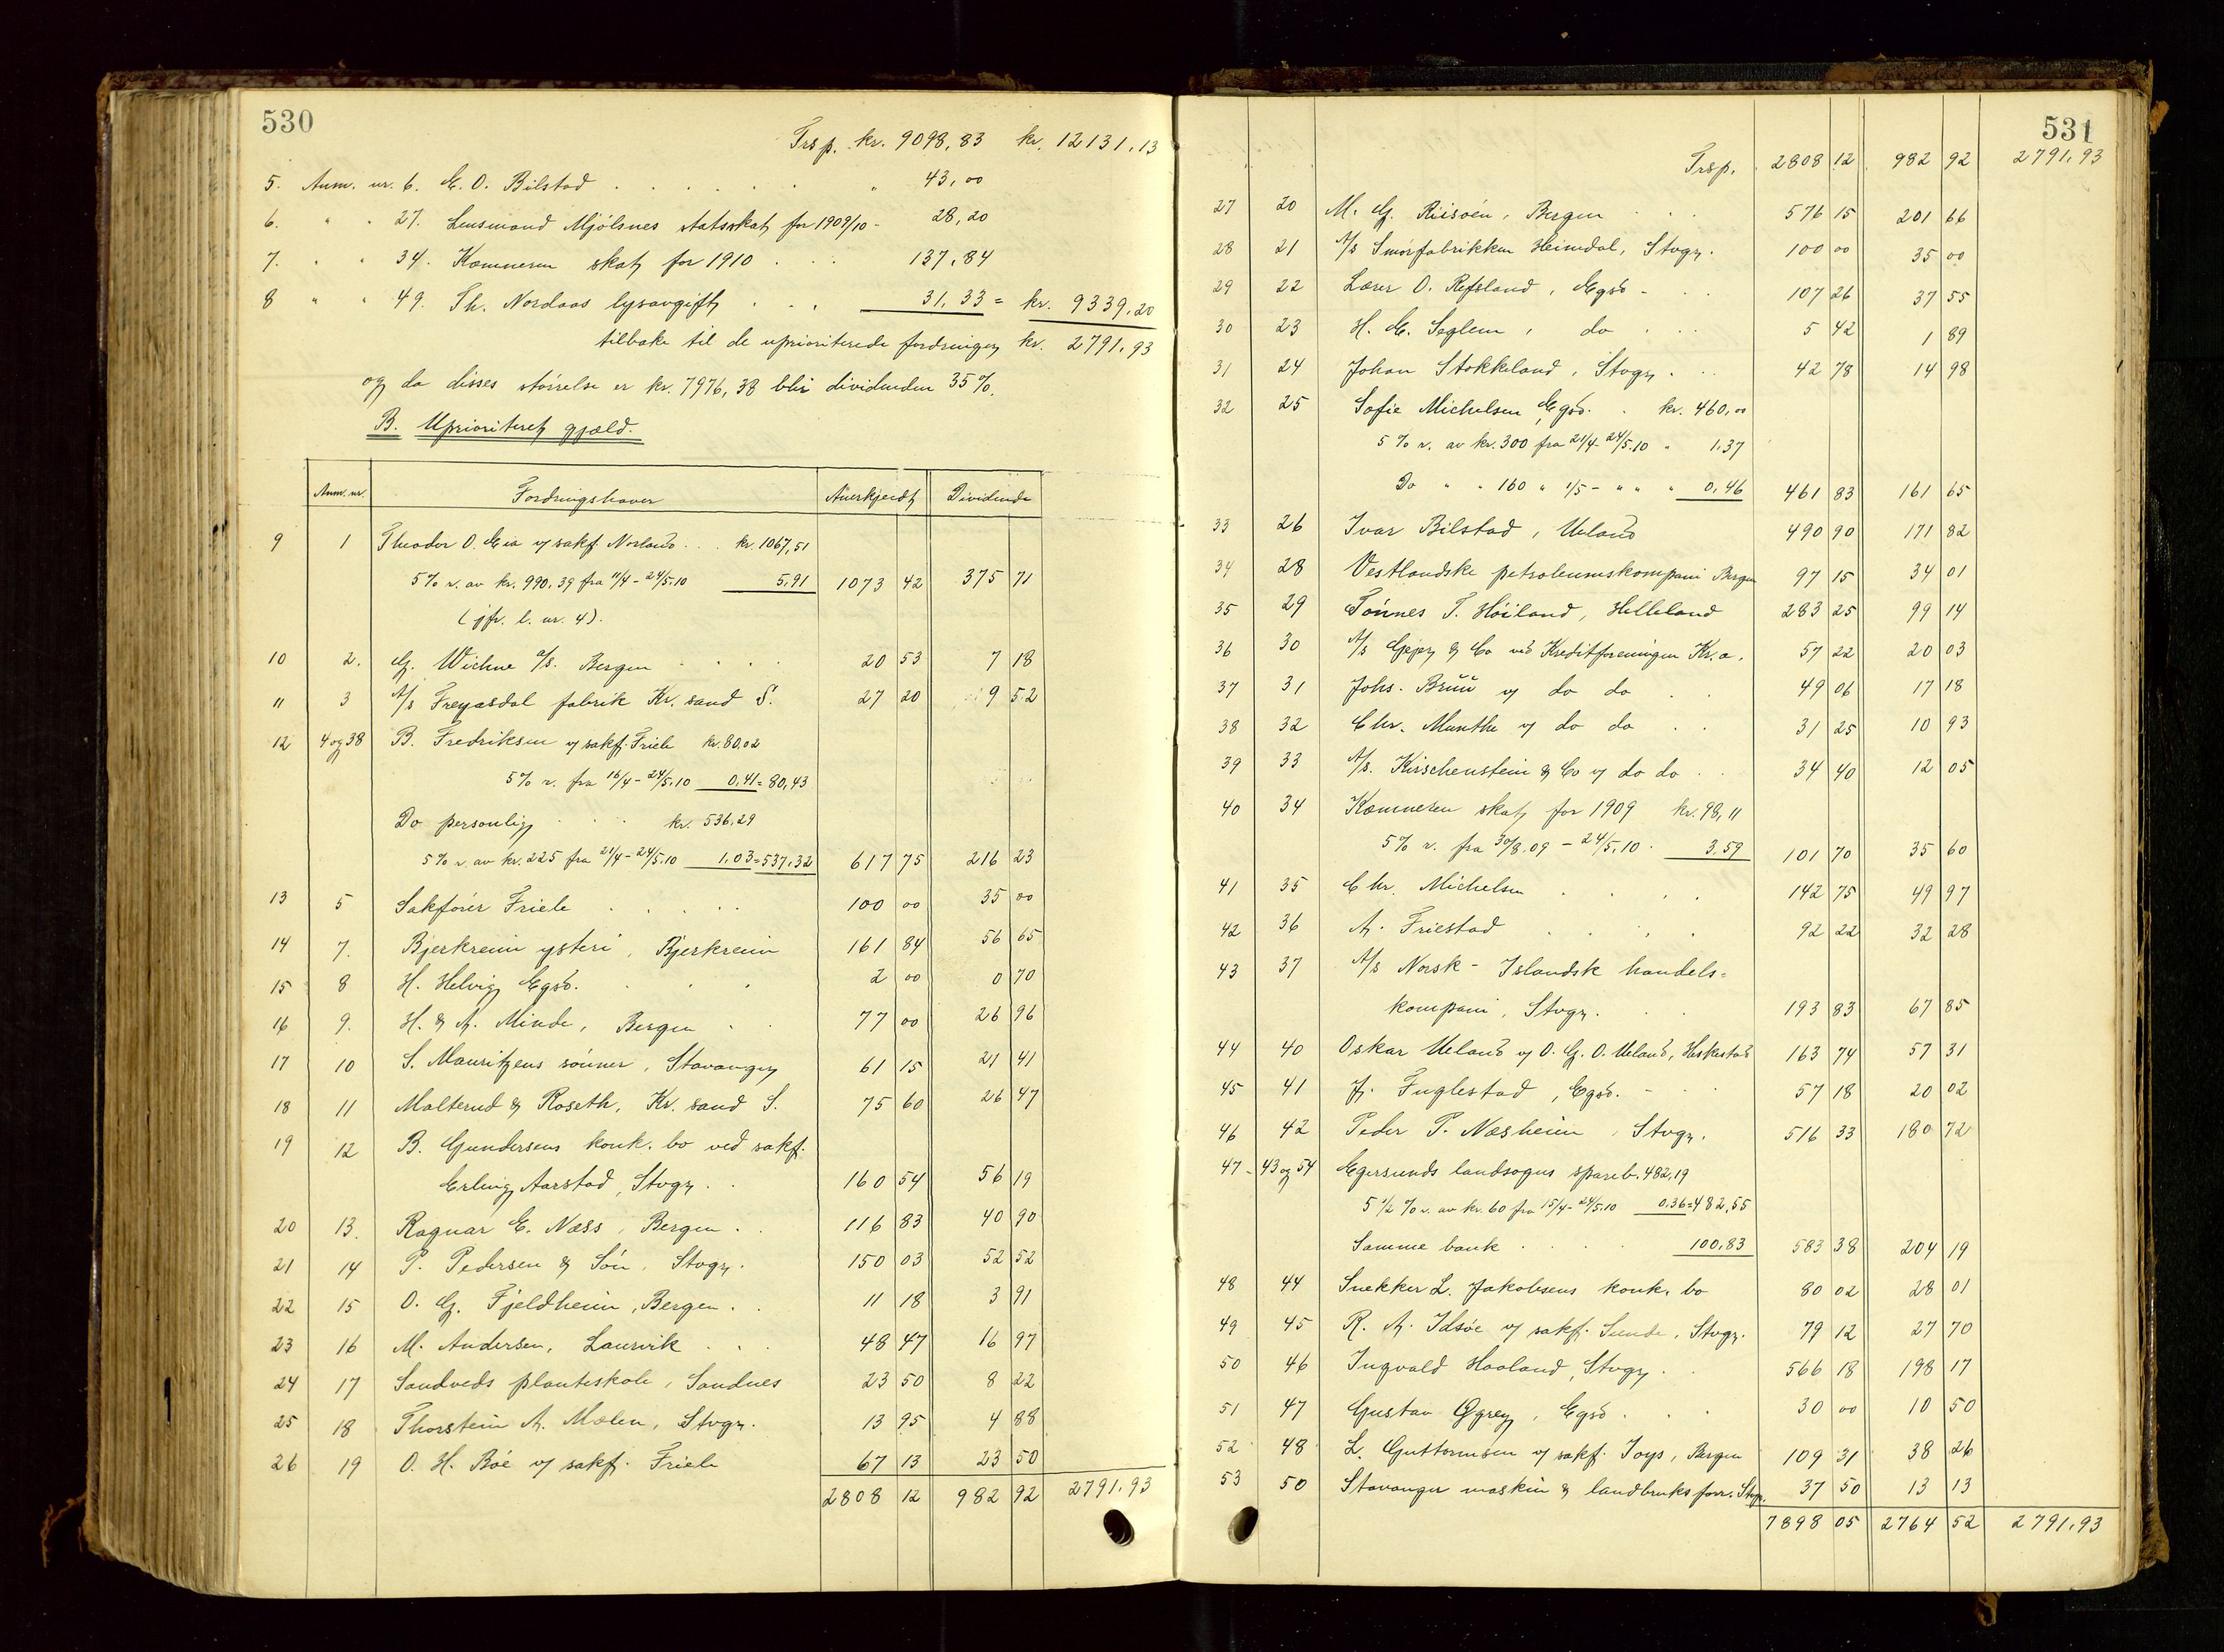 530
Trsp. kr. 9098,83 kr. 12131,13
5. Anm. nr. 6. E. O. Bilstad . . . . . . " 43,00
6. " " 27. Lensmand Mjölsnes statsskat for 1909/10 - 28,20
7. " " 34. Kæmneren skat for 1910 . . . 137,84
8 " " 49. Th. Nordaas lysavgift . . . 31,33 = kr. 9339,20
tilbake til de uprioriterede fordringer kr. 2791,93
og da disses störrelse er kr. 7976,38 blir dividenden 35%.
B. Uprioritert gjæld.
Anm. nr. Fordringshaver Anerkjendt Dividende
9 1 Theodor O. Eia v/ sakf. Norland . . . kr. 1067,51
5% r. av kr. 990,39 fra 11/4 - 24/5.10 5,91 1073 42 375 71
(jfr. l. nr. 4).
10 2. G. Wiehne a/s. Bergen . . . . 20 53 7 18
11 3 A/s Freyasdal fabrik Kr.sand S. 27 20 9 52
12 4 og 38 B. Fredriksen v/ sakf. Friele kr. 80,02
5% r. fra 16/4 - 24/5.10 0,41 = 80,43
Do personlig . . . kr. 536,29
5% r. av kr. 225 fra 21/4 - 24/5.10 1,03 = 537,32 617 75 216 23
13 5 Sakförer Friele . . . . . 100 00 35 00
14 7. Bjerkreim ysteri, Bjerkreim 161 84 56 65
15 8 H. Helvig Egsd. . . . 2 00 0 70
16 9. H. & A. Minde, Bergen . . 77 00 26 96
17 10 S. Mauritzens sönner, Stavanger 61 15 21 41
18 11 Malterud & Roseth, Kr.sand S. 75 60 26 47
19 12 B. Gundersens konk. bo ved sakf.
Erling Aarstad, Stvgr. . . 160 54 56 19
20 13. Ragnar E. Næss, Bergen . . 116 83 40 90
21 14 P. Pedersen & Sön, Stvgr. 150 03 52 52
22 15 O. G. Fjeldheim, Bergen . . 11 18 3 91
23 16 M. Andersen, Laurvik . . . 48 47 16 97
24 17 Sandveds planteskole, Sandnes 23 50 8 22
25 18 Thorstein A. Mælen, Stvgr. 13 95 4 88
26 19 O. H. Böe v/ sakf. Friele 67 13 23 50
2808 12 982 92 2791,93
531
Trsp. 2808 12 982 92 2791,93
27 20 M. G. Riisöen, Bergen . . . 576 15 201 66
28 21 A/s Smörfabrikken Heimdal, Stvgr. 100 00 35 00
29 22 Lærer O. Refsland, Egsd - . . 107 26 37 55
30 23 H. E. Seglem, do . . . 5 42 1 89
31 24 Johan Stokkeland, Stvgr. . . 42 78 14 98
32 25 Sofie Michelsen Egsd. . kr. 460,00
5% r. av kr. 300 fra 21/4 - 24/5.10 " 1,37
Do " " 160 " 1/5 - " " " 0,46 461 83 161 65
33 26 Ivar Bilstad, Ueland 490 90 171 82
34 28 Vestlandske petroleumskompani Bergen 97 15 34 01
35 29 Tönnes T. Höiland, Helleland 283 25 99 14
36 30 A/s Gjepy & Co ved Kreditforeningen Kr.a. 57 22 20 03
37 31 Johs. Bruu v/ do do . . 49 06 17 18
38 32 Chr. Munthe v/ do do . . 31 25 10 93
39 33 A/s. Kirschenstein & Co v/ do do . . 34 40 12 05
40 34 Kæmneren skat for 1909 kr. 98,11
5% r. fra 30/8.09 - 24/5.10 . 3,59 101 70 35 60
41 35 Chr. Michelsen . . . 142 75 49 97
42 36 A. Friestad . . . . 92 22 32 28
43 37 A/s Norsk - Islandsk handels=
kompani, Stvgr. . . 193 83 67 85
44 40 Oskar Ueland v/ O. G. O. Ueland, Heskestad 163 74 57 31
45 41 J. Fuglestad, Egsd. - . . 57 18 20 02
46 42 Peder P. Næsheim, Stvgr. 516 33 180 72
47 - 43 og 54 Egersunds landsogns spareb. 482,19
5 1/2 % r. av kr. 60 fra 15/4 - 24/5.10 0,36 = 482,55
Samme bank . . . . 100,83 583 38 204 19
48 44 Snekker L. Jakobsens konk. bo 80 02 28 01
49 45 R. A. Idsöe v/ sakf. Sunde, Stvgr. 79 12 27 70
50 46 Ingvald Haaland, Stvgr. . 566 18 198 17
51 47 Gustav Qgrey, Egsd . . . 30 00 10 50
52 48 L. Guttormsen v/ sakf. Joys, Bergen 109 31 38 26
53 50 Stavanger maskin & landbruksforr. Stvgr. 37 50 13 13
7898 05 2764 52 2791,93